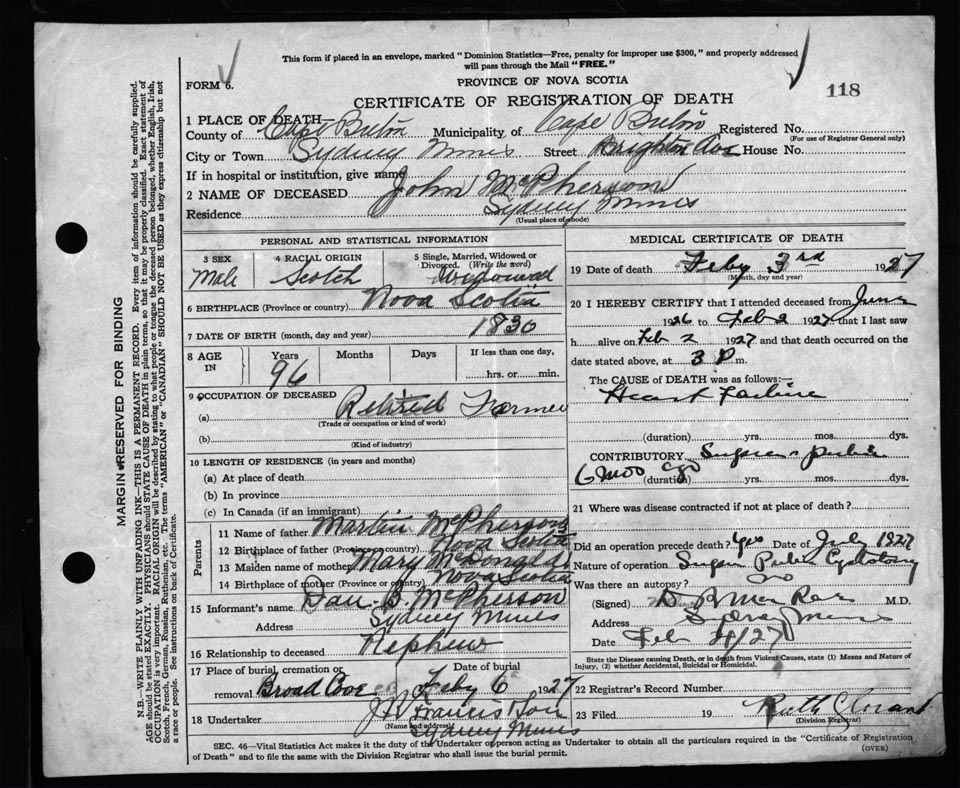 This form if placed in an envelope, marked "Dominion Statistics—Free, penalty for improper use $300," and properly addressed
will pass through the Mail "FREE."
FORM 6.
PROVINCE OF NOVA SCOTIA
118
CERTIFICATE OF REGISTRATION OF DEATH
1 PLACE OF DEATH
County of Cape Breton Municipality of Cape Breton Registered No.
(For use of Registrar General only)
City or Town Sydney Mines Street Brighton Ave House No.
If in hospital or institution, give name
2 NAME OF DECEASED John McPherson
Residence Sydney Mines
(Usual place of abode)
PERSONAL AND STATISTICAL INFORMATION
3 SEX Male
4 RACIAL ORIGIN Scotch
5 Single, Married, Widowed or Divorced. (Write the word) Widowed
6 BIRTHPLACE (Province or country) Nova Scotia
7 DATE OF BIRTH (month, day and year) 1830
8 AGE IN Years 96 Months Days If less than one day, hrs. or min.
9 OCCUPATION OF DECEASED
(a) Retired Farmer
(Trade or occupation or kind of work)
(b)
(Kind of industry)
10 LENGTH OF RESIDENCE (in years and months)
(a) At place of death
(b) In province
(c) In Canada (if an immigrant)
Parents
11 Name of father Martin McPherson
12 Birthplace of father (Province or country) Nova Scotia
13 Maiden name of mother Mary McDonald
14 Birthplace of mother (Province or country) Nova Scotia
15 Informant's name Dan B. McPherson
Address Sydney Mines
16 Relationship to deceased Nephew
17 Place of burial, cremation or removal Broad Cove Date of burial Feby 6 1927
18 Undertaker Francis
(Name and address) Sydney Mines
MEDICAL CERTIFICATE OF DEATH
19 Date of death Feby 3rd 1927
(Month, day and year)
20 I HEREBY CERTIFY that I attended deceased from June
1926 to Feb 2 1927 that I last saw
h alive on Feb 2 1927 and that death occurred on the
date stated above, at 3 P m.
The CAUSE of DEATH was as follows:—
Heart Failure
(duration) yrs. mos. dys.
CONTRIBUTORY
6 mos ago (duration) yrs. mos. dys.
21 Where was disease contracted if not at place of death?
Did an operation precede death? Yes Date of July 1927
Nature of operation
Was there an autopsy? no
(Signed) M.D.
Address Sydney Mines
Date Feb 4/27
State the Disease causing Death, or in death from Violent Causes, state (1) Means and Nature of
Injury, (2) whether Accidental, Suicidal or Homicidal.
22 Registrar's Record Number
23 Filed 19 Ruth
(Division Registrar)
SEC. 46—Vital Statistics Act makes it the duty of the Undertaker or person acting as Undertaker to obtain all the particulars required in the "Certificate of Registration
of Death" and to file the same with the Division Registrar who shall issue the burial permit.
(OVER)
MARGIN RESERVED FOR BINDING
N.B.—WRITE PLAINLY WITH UNFADING INK—THIS IS A PERMANENT RECORD. Every item of information should be carefully supplied.
AGE should be stated EXACTLY. PHYSICIANS should STATE CAUSE OF DEATH in plain terms, so that it may be properly classified. Exact statement of
OCCUPATION is very important. RACIAL ORIGIN will be described by stating to what people or tongue the deceased person belonged, whether English, Irish,
Scotch, French, German, Russian, Ruthenian, etc. The terms "AMERICAN" or "CANADIAN" SHOULD NOT BE USED as they express citizenship but not
a race or people. See instructions on back of Certificate.